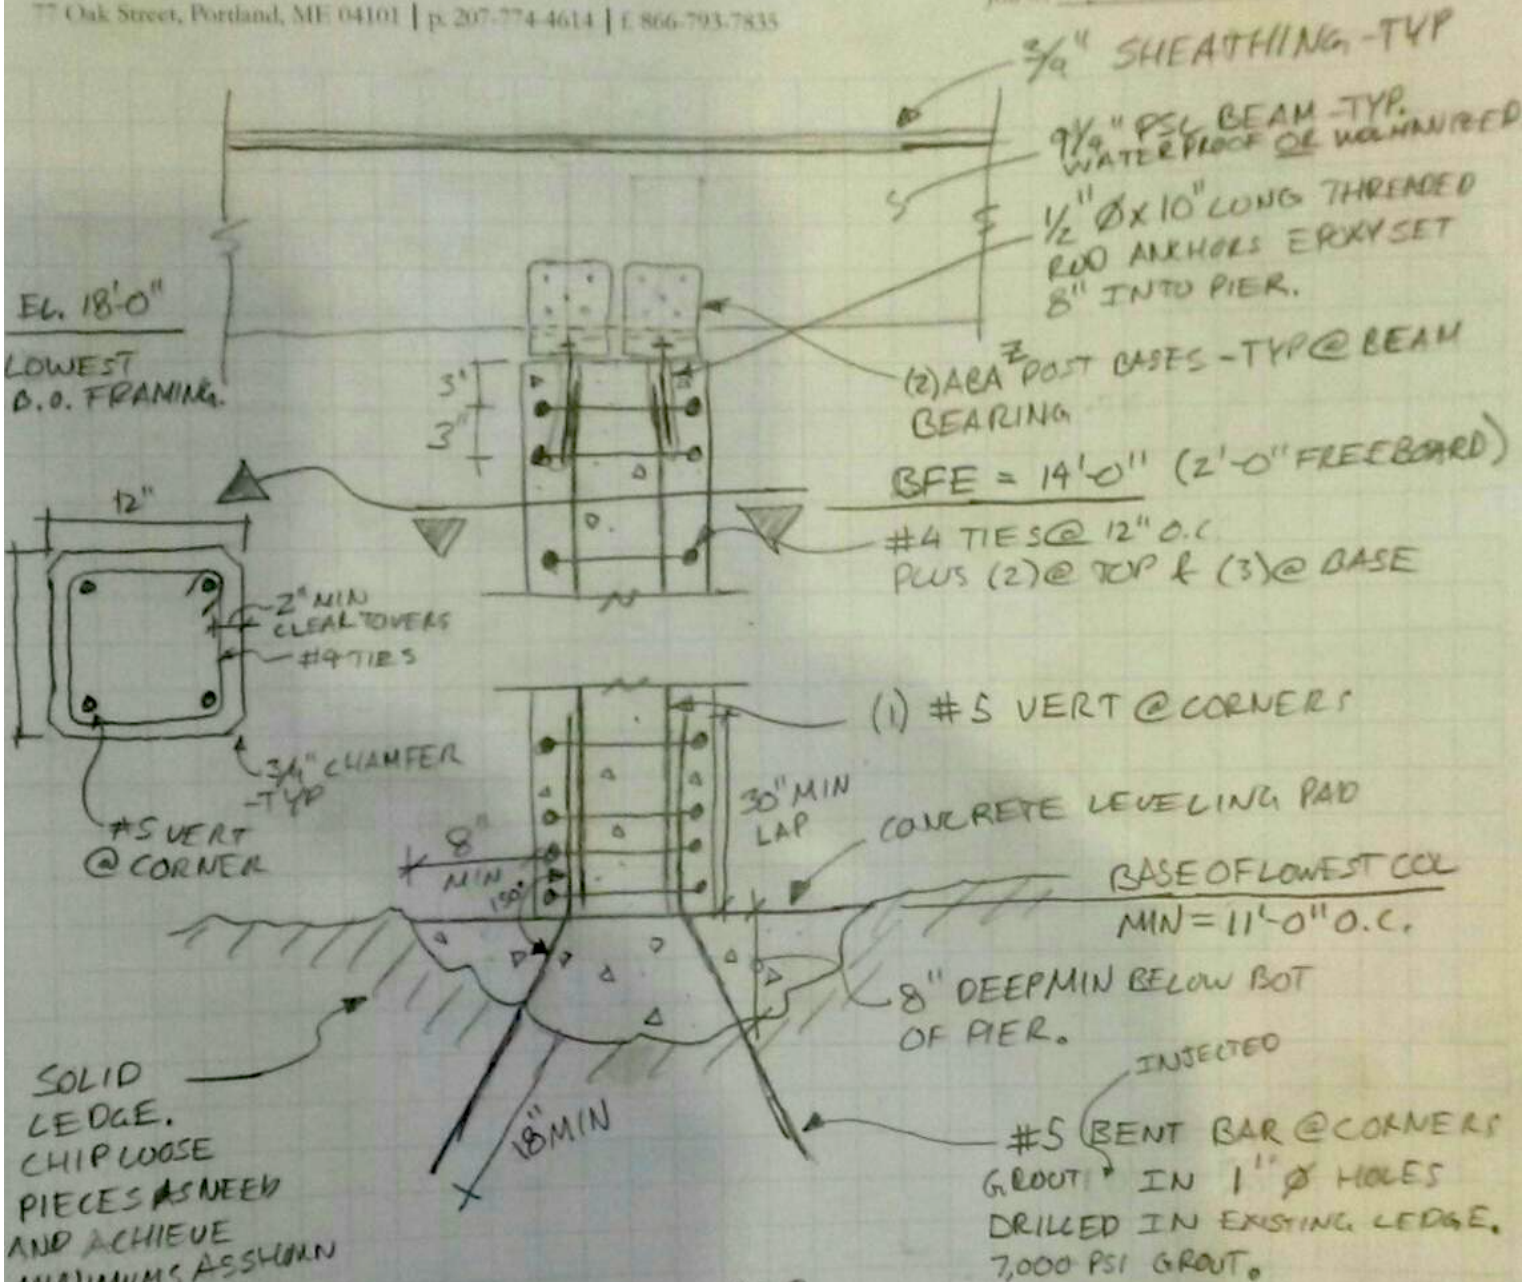 77 Oak Street, Portland, ME 04101 | p. 207-774-4614 | f. 866-793-7835
3/4" SHEATHING-TYP
9 1/4" PSL BEAM-TYP.
WATERPROOF OR WOLMANIZED
1/2" Ø X 10" LONG THREADED
ROD ANCHORS EPOXY SET
8" INTO PIER.
EL. 18'-0"
LOWEST
B.O. FRAMING.
3"
3"
(2) ABA Z POST BASES - TYP @ BEAM
BEARING
BFE = 14'-0" (2'-0" FREEBOARD)
#4 TIES @ 12" O.C.
PLUS (2) @ TOP & (3) @ BASE
12"
2" MIN
CLEAR COVERS
#4 TIES
3/4" CHAMFER
-TYP
#5 VERT
@ CORNER
(1) #5 VERT @ CORNERS
30" MIN
LAP
CONCRETE LEVELING PAD
8"
MIN
150°
BASE OF LOWEST COL
MIN = 11'-0" O.C.
8" DEEP MIN BELOW BOT
OF PIER.
SOLID
LEDGE.
CHIP LOOSE
PIECES AS NEED
AND ACHIEVE
MINIMUMS AS SHOWN
18" MIN
INJECTED
#5 BENT BAR @ CORNERS
GROUT IN 1" Ø HOLES
DRILLED IN EXISTING LEDGE.
7,000 PSI GROUT.